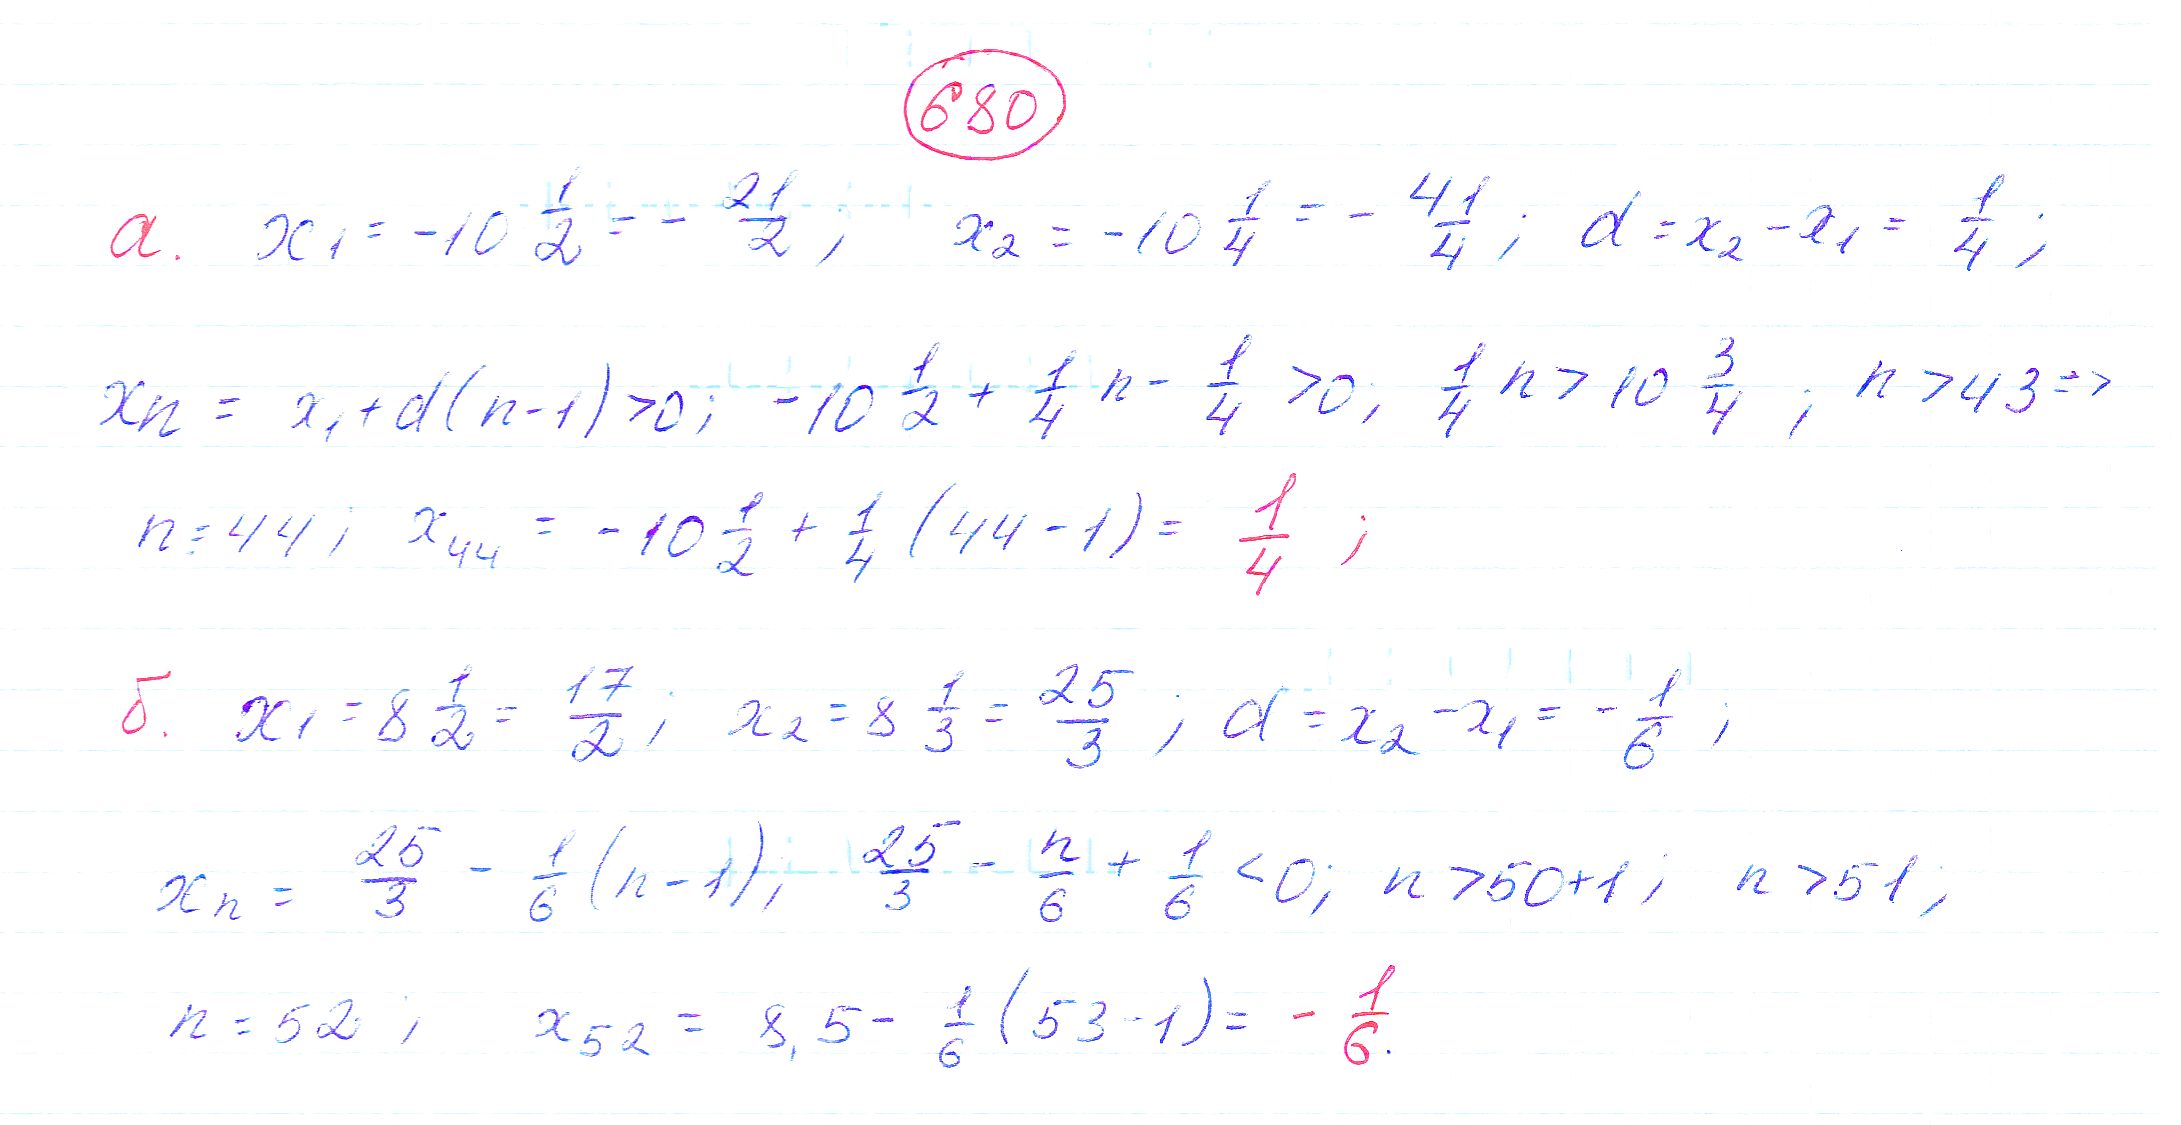 680
а. x₁ = -10 1/2 = - 21/2 ; x₂ = -10 1/4 = - 41/4 ; d = x₂ - x₁ = 1/4 ;
xn = x₁ + d(n-1) >0 ; -10 1/2 + 1/4 n - 1/4 >0 ; 1/4 n > 10 3/4 ; n > 43 =>
n = 44 ; x₄₄ = -10 1/2 + 1/4 (44 - 1) = 1/4 ;
б. x₁ = 8 1/2 = 17/2 ; x₂ = 8 1/3 = 25/3 ; d = x₂ - x₁ = - 1/6 ;
xn = 25/3 - 1/6 (n-1) ; 25/3 - n/6 + 1/6 < 0 ; n > 50+1 ; n > 51 ;
n = 52 ; x₅₂ = 8,5 - 1/6 (53-1) = - 1/6.